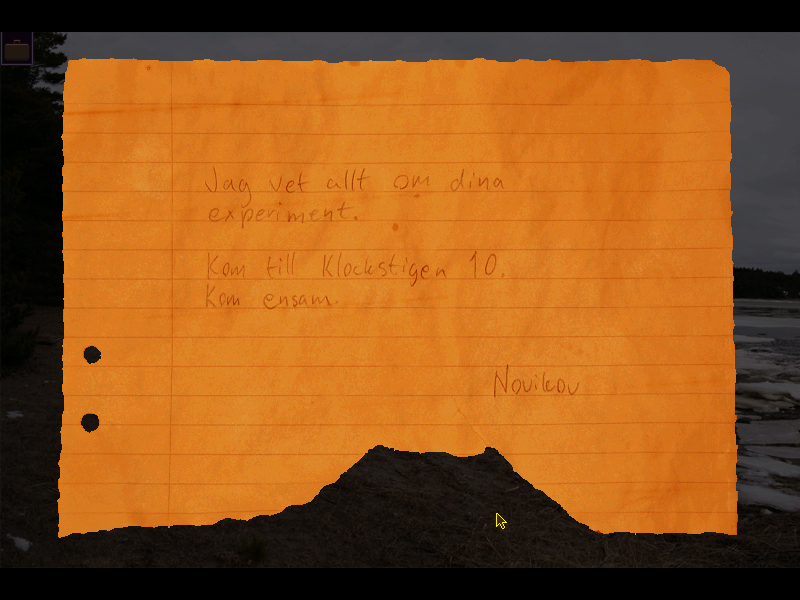 Jag vet allt om dina
experiment.
Kom till Klockstigen 10.
Kom ensam.
Novikov